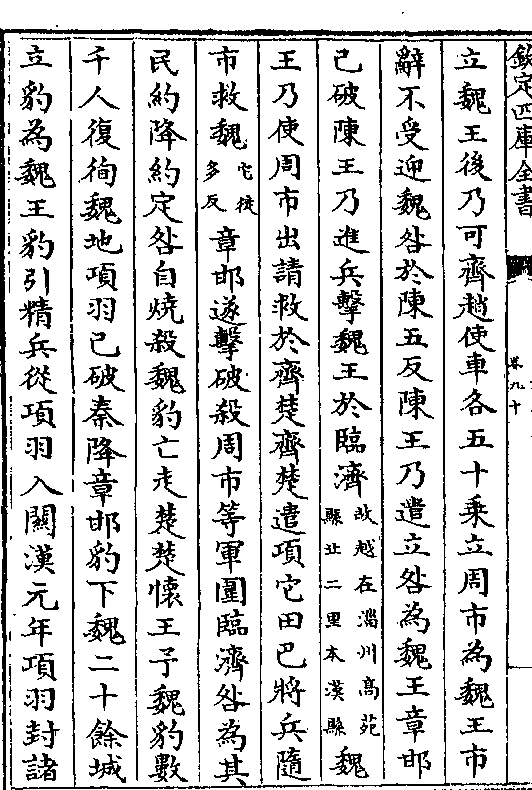 欽定四庫全書
卷九十
立魏王後乃可齊趙使車各五十乗立周市為魏王市
辭不受迎魏咎於陳五反陳王乃遣立咎為魏王章邯
已破陳王乃進兵擊魏王於臨濟故越在淄州高苑縣北二里本漢縣魏
王乃使周市出請救於齊楚齊楚遣項它田巴將兵隨
市救魏它徒多反章邯遂擊破殺周市等軍圍臨濟咎為其
民約降約定咎自燒殺魏豹亡走楚楚懷王予魏豹數
千人復徇魏地項羽已破秦降章邯豹下魏二十餘城
立豹為魏王豹引精兵從項羽入關漢元年項羽封諸